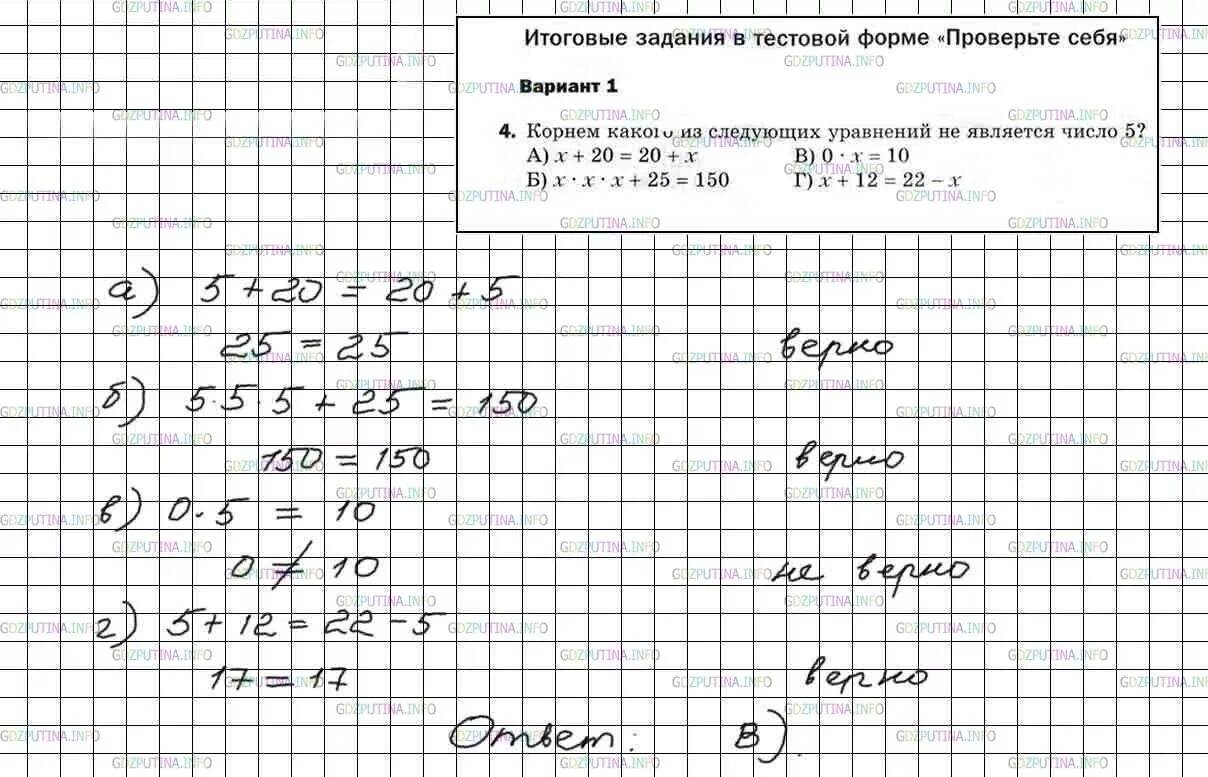 Итоговые задания в тестовой форме «Проверьте себя»
Вариант 1
4. Корнем какого из следующих уравнений не является число 5?
А) x + 20 = 20 + x В) 0 · x = 10
Б) x · x · x + 25 = 150 Г) x + 12 = 22 − x
а) 5 + 20 = 20 + 5
25 = 25 верно
б) 5·5·5 + 25 = 150
150 = 150 верно
в) 0·5 = 10
0 ≠ 10 не верно
г) 5 + 12 = 22 − 5
17 = 17 верно
Ответ: В).
GDZPUTINA.INFO